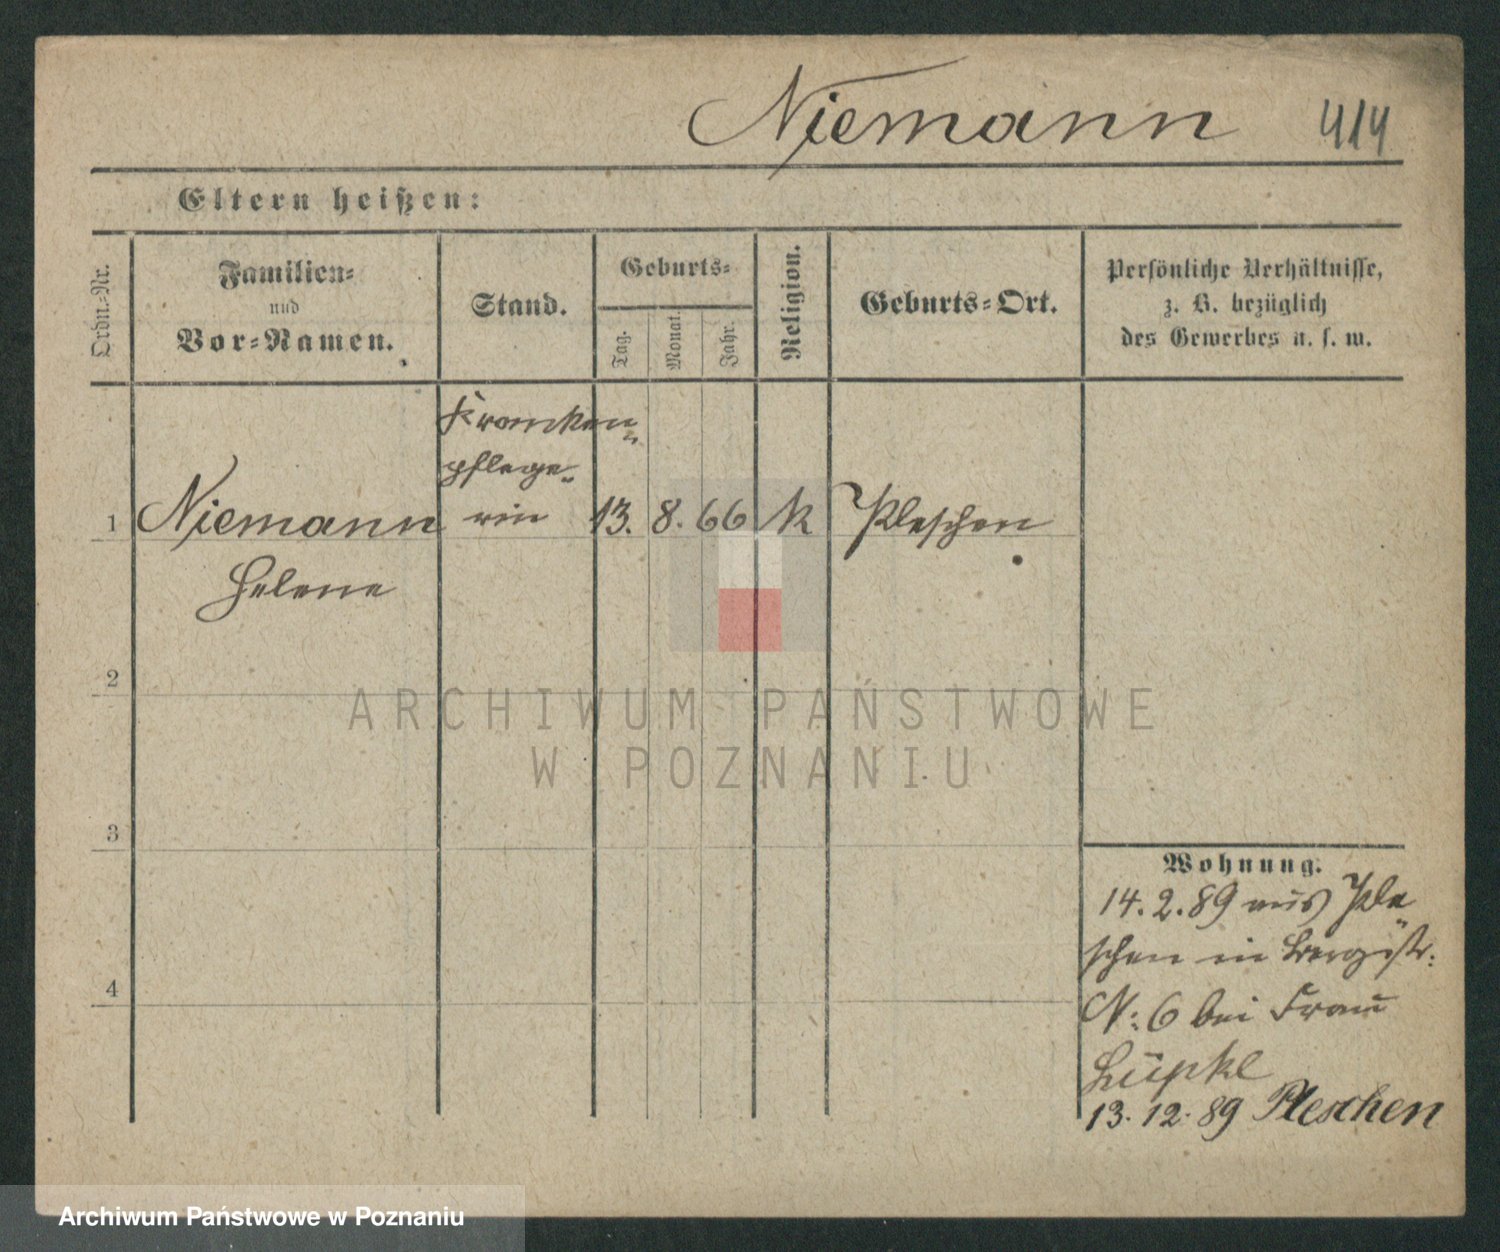 Niemann 414
Eltern heißen:
Ordn.-Nr.
Familien-
und
Vor-Namen.
Stand.
Geburts-
Tag.
Monat.
Jahr.
Religion.
Geburts-Ort.
Persönliche Verhältnisse,
z. B. bezüglich
des Gewerbes u. s. w.
Kranken-
pflege-
rin
1 Niemann 13. 8. 66 k Pleschen
Helene
2
3
4
Wohnung.
14. 2. 89 aus Ple
schen in Bergstr:
N: 6 bei Frau
13. 12. 89 Pleschen
ARCHIWUM PAŃSTWOWE
W POZNANIU
Archiwum Państwowe w Poznaniu